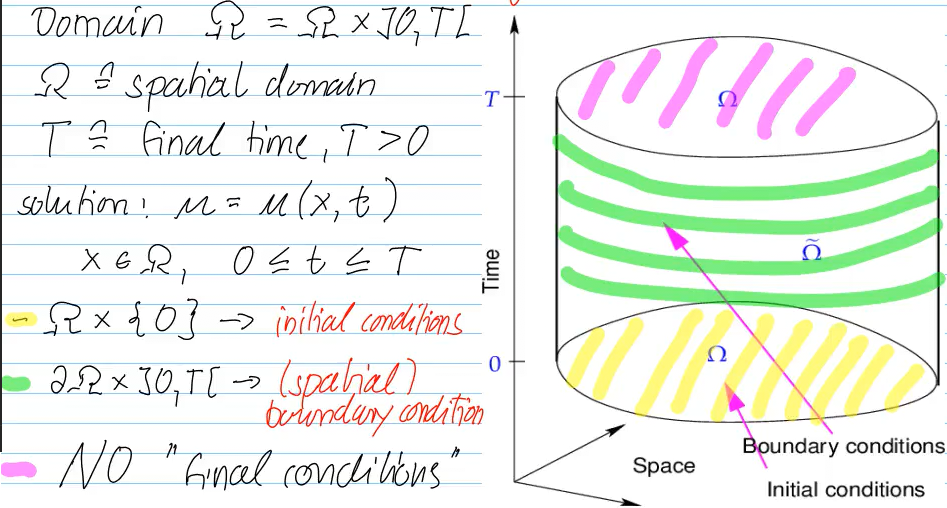 Domain Ω = Ω × ]0,T[
Ω ≙ spatial domain
T ≙ final time, T > 0
solution: u = u(x, t)
x ∈ Ω, 0 ≤ t ≤ T
Ω × {0} → initial conditions
∂Ω × ]0,T[ → (spatial)
boundary condition
NO "final conditions"
T
Ω
Time
Ω̃
0
Ω
Boundary conditions
Space
Initial conditions